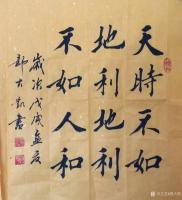 天時不如
地利地利
不如人和
歲次戊戌孟夏
大書